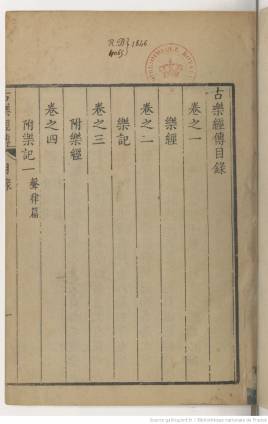 古樂經傳目錄
卷之一
樂經
卷之二
樂記
卷之三
附樂經
卷之四
附樂記一 聲律篇
古樂經傳 目錄
R.D. 1846
BIBLIOTHEQUE ROYALE
Source gallica.bnf.fr / Bibliothèque nationale de France